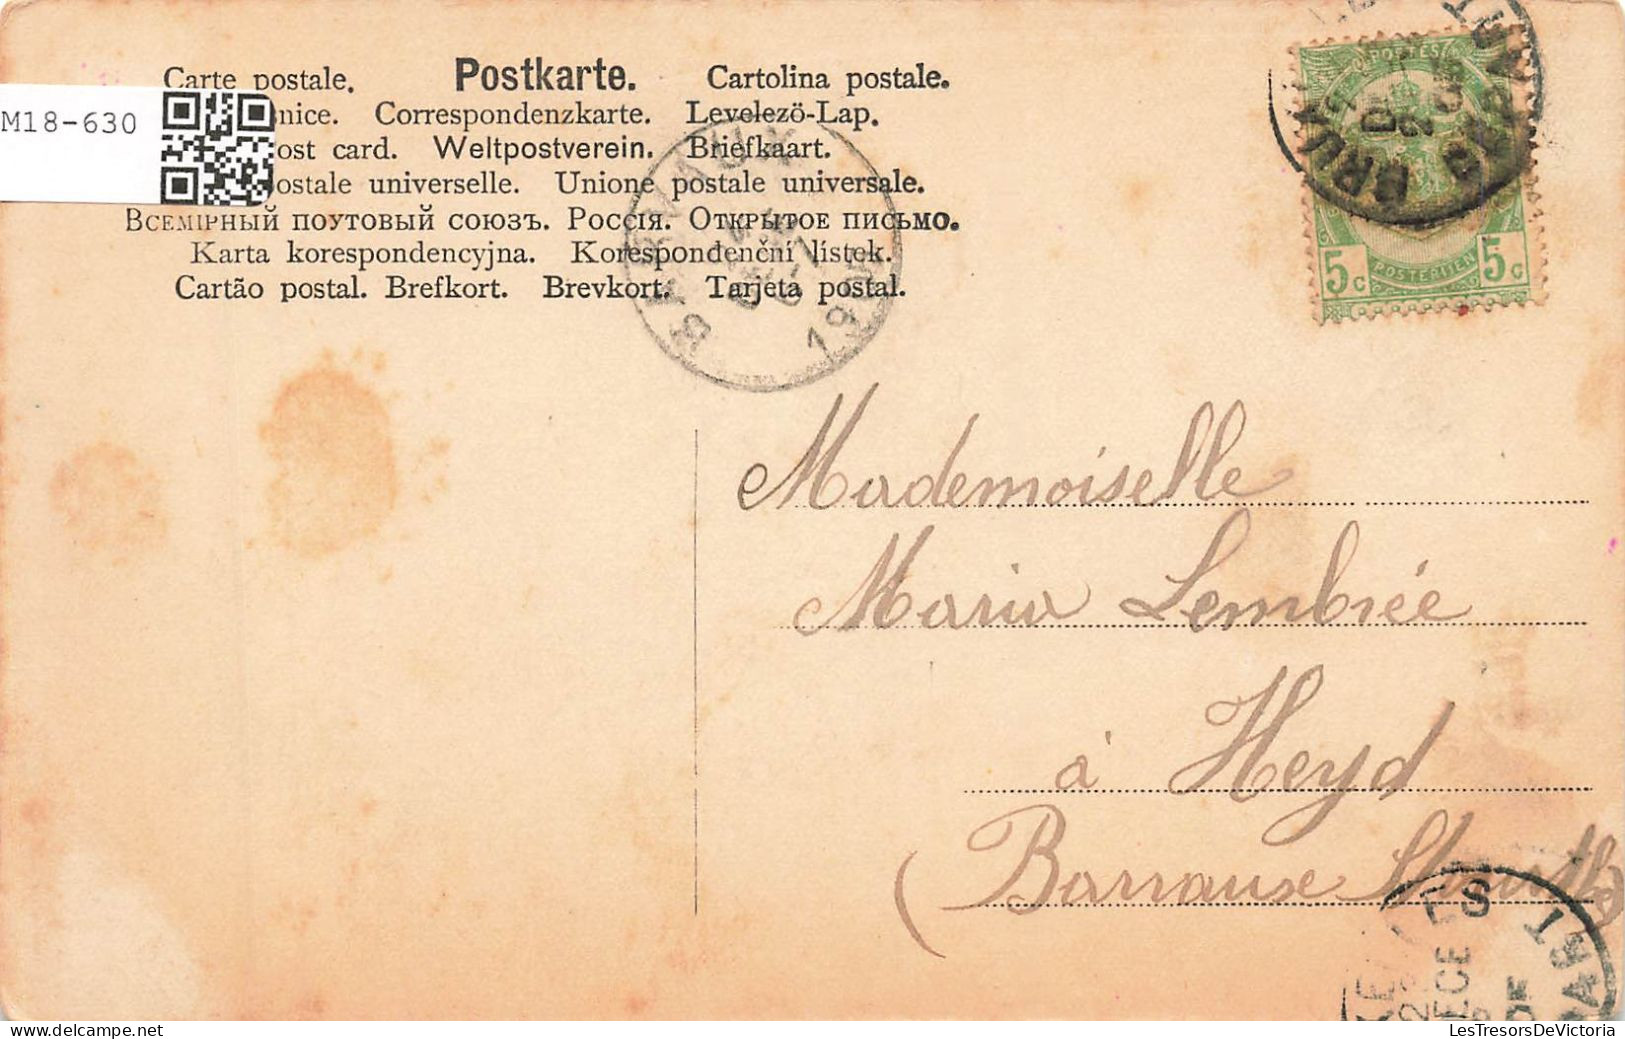 Carte postale. Postkarte. Cartolina postale.
M18-630
nice. Correspondenzkarte. Levelező-Lap.
ost card. Weltpostverein. Briefkaart.
ostale universelle. Unione postale universale.
Всемірный поутовый союзъ. Россія. Открытое письмо.
Karta korespondencyjna. Korespondenční lístek.
Cartão postal. Brefkort. Brevkort. Tarjeta postal.
POSTES
5c POSTERIJEN 5c
Mademoiselle
Maria Lembrée
à Heyd
(Barvaux
LesTresorsDeVictoria